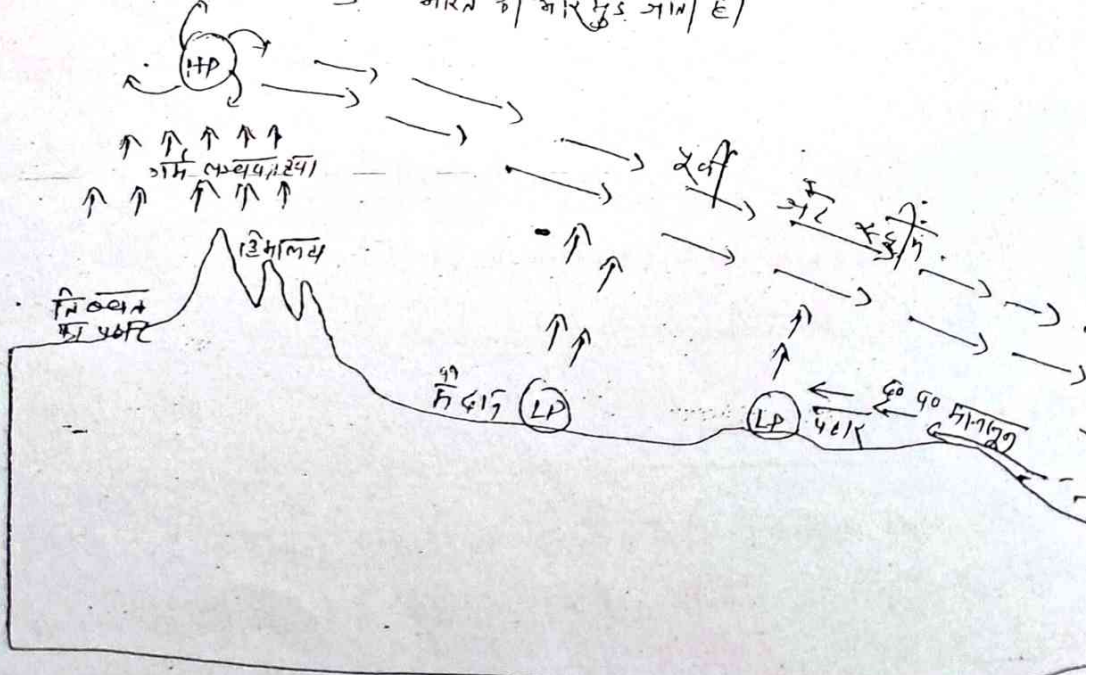 भारत की ओर मुड़ जाता है।
HP
गर्म लम्बवत हवा
हिमालय
तिब्बत
का पठार
मैदान
LP
LP
पठार
द० प० मानसून
पूर्वी
जेट